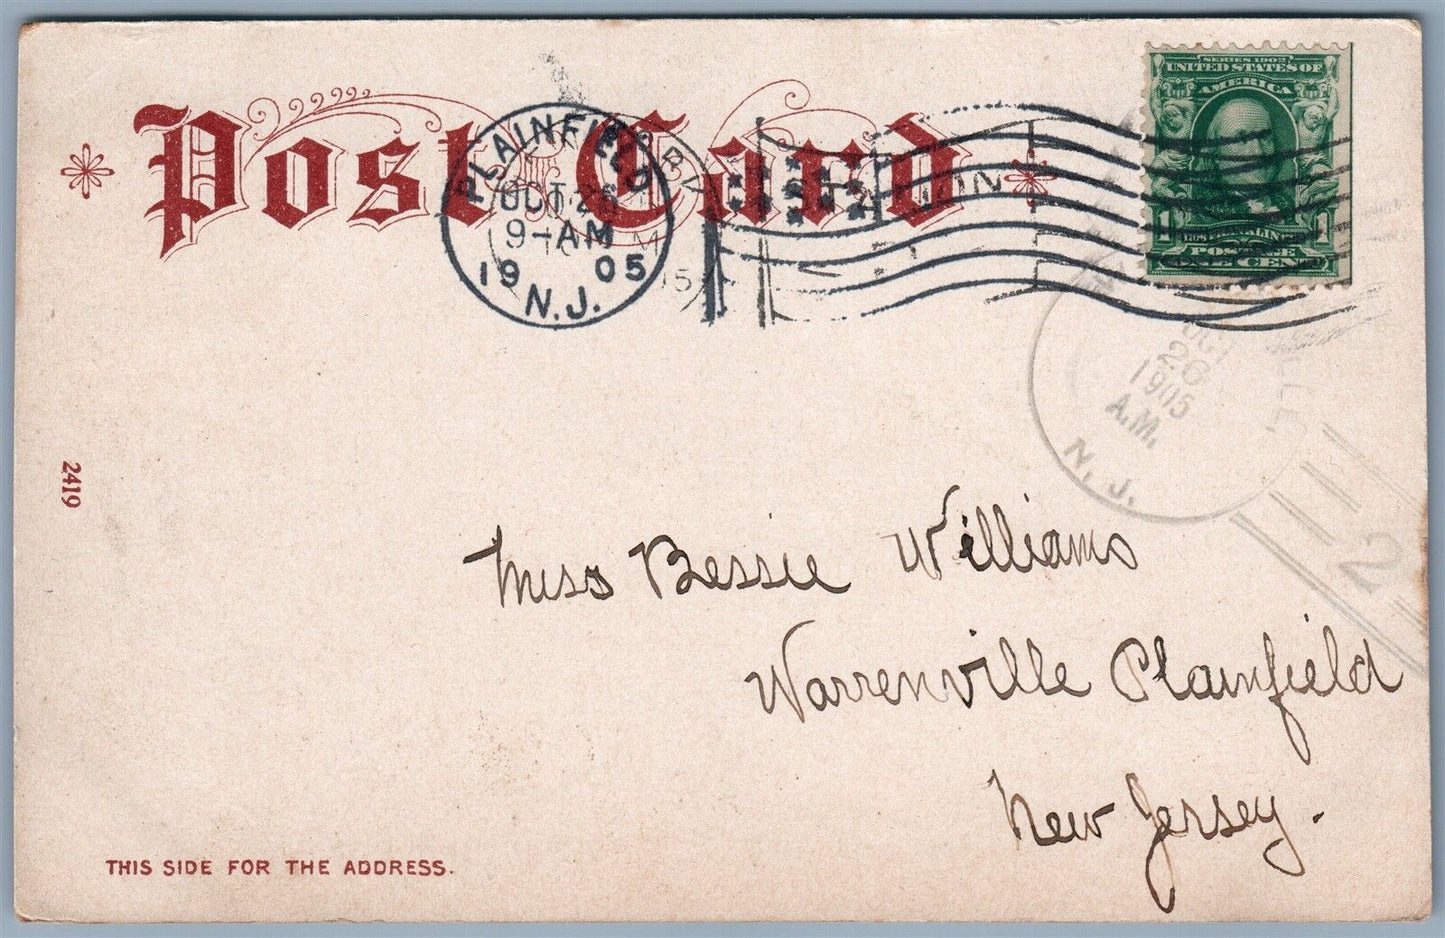 Post Card
PLAINFIELD
OCT 26
9-AM
1905
N.J.
SERIES 1902
UNITED STATES OF
AMERICA
1 1
POSTAGE
OCT
26
1905
A.M.
N. J.
2
2419
Miss Bessie Williams
Warrenville Plainfield
New Jersey.
THIS SIDE FOR THE ADDRESS.